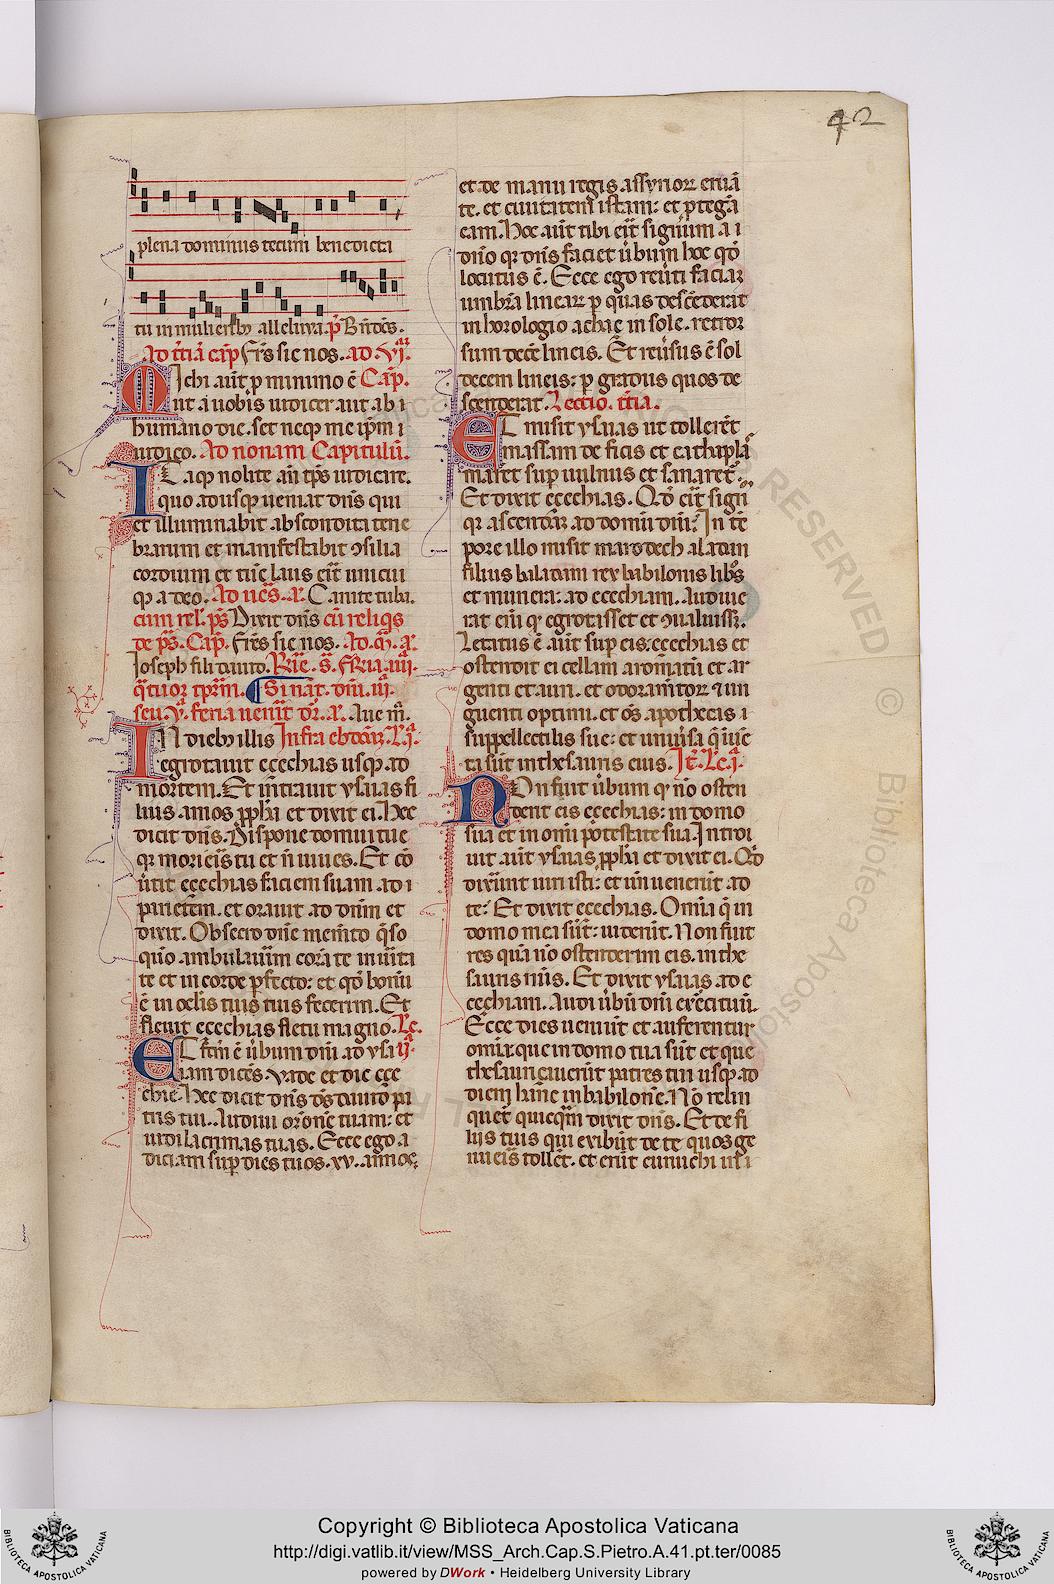 42
plena dominus tecum benedicta
tu in mulierib; alleluya. p̄ Bn̄dc̄s.
Ad t̄ciā cap̄ Fr̄s sic nos. ad vj.
Michi aut̄ p minimo ē Cap̄.
ut a uobis iudicer aut ab
humano die. set neq; me ip̄m
iudico. Ad nonam Capitulū.
Itaq; nolite an̄ tp̄s iudicare.
quo adusq; ueniat dn̄s qui
et illuminabit abscondita tene
brarum et manifestabit ꝯsilia
cordium et tūc laus erit unicui
q; a deo. Ad ūes. a. Canite tuba.
cum rel. ps̄ Dixit dn̄s cū reliq̄s
de ps̄. Cap̄. Fr̄s sic nos. Ad. m̄. a.
Ioseph fili dauid.
Si nat. dn̄i. iij.
feria uen̄it Aue m̄.
IN dieb; illis Infra ebdom̄. l. j.
egrotauit ezechias usq; ad
mortem. Et int̄auit ysaias fi
lius amos ꝓph̄a et dixit ei. Hec
dicit dn̄s. Dispone domui tue
qr morieris tu et n̄ uiues. Et cō
ūtit ezechias faciem suam ad
parietem. et orauit ad dn̄m et
dixit. Obsecro dn̄e mem̄to q̄so
quō ambulauim corā te in ūita
te et in corde ꝑfecto: et qd̄ bonū
ē in oc̄lis tuis tuis fecerim. Et
fleuit ezechias fletu magno. Lc̄.
ET fc̄m ē ūbum dn̄i ad ysa ij.
iam dicēs. Vade et dic eze
chie. Hec dicit dn̄s ds̄ dauid pa
tris tui. Audiui orōnē tuam: et
uidi lacrimas tuas. Ecce ego a
diciam suꝑ dies tuos. xv. annos.
et de manu regis assyrior eruā
te. et ciuitatem istam: et ꝓtegā
eam. Hoc aūt tibi erit signum a
dn̄o qr dn̄s faciet ūbum hoc qd̄
locutus ē. Ecce ego reūti faciaꝫ
umbrā linearꝫ ꝑ quas descēderat
in horologio achaz in sole. retror
sum decē lineis. Et reūsus ē sol
decem lineis: ꝑ gradus quos de
scenderat. Lectio. t̄cia.
ET misit ysaias ut tollerēt
massam de ficis et cathapla
marēt suꝑ uulnus et sanaret.
Et dixit ezechias. Qd̄ erit signū
qr ascendā ad domū dn̄i: In tē
pore illo misit marodech aladam
filius baladam rex babilonis lib̄os
et munera: ad ezechiam. Audiue
rat enī qr egrotasset et ꝯualuissꝫ.
Letatus ē aūt suꝑ eis. ezechias et
ostendit ei cellam aromatū et ar
genti et auri. et odoramētor et un
guenti optimi. et oēs apothecas
suppellectilis sue: et uniūsa q̄ inūe
ta sūt in thesauris eius. It̄. Lc̄. j.
NOn fuit ūbum qr nō osten
dent eis ezechias: in domo
sua et in omī potestate sua. Introi
uit aūt ysaias ꝓph̄a et dixit ei. Qd̄
dixerunt uiri isti: et un̄ uenerūt ad
te: Et dixit ezechias. Omīa q̄ in
domo mea sūt: uiderūt. Non fuit
res quā nō ostenderim eis. in the
sauris meis. Et dixit ysaias. ad e
zechiam. Audi ūbū dn̄i exercituū.
Ecce dies ueniūt et auferentur
omīa que in domo tua sūt et que
thesaurizauerūt patres tui usq; ad
diem hanc in babilonē. Nō relin
quet̄ quicq̄m dixit dn̄s. Et de fi
liis tuis qui exibūt de te quos ge
nueris tollet. et erūt eunuchi in
Copyright © Biblioteca Apostolica Vaticana
http://digi.vatlib.it/view/MSS_Arch.Cap.S.Pietro.A.41.pt.ter/0085
powered by DWork • Heidelberg University Library